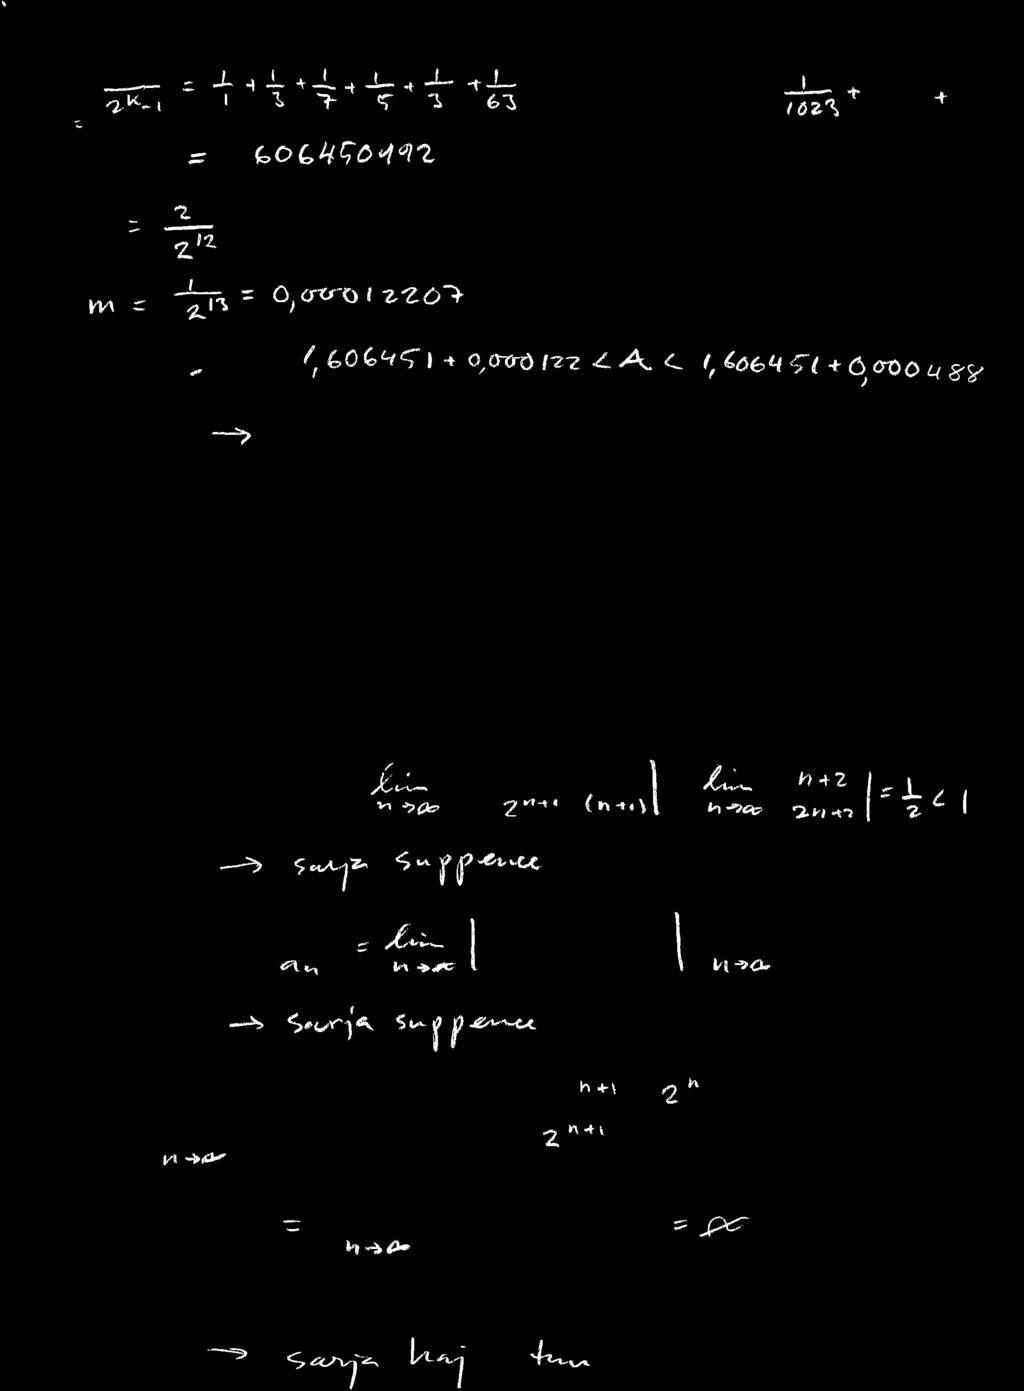 = 1/(2^k-1) = 1/1 + 1/3 + 1/7 + 1/5 + 1/3 + 1/63 1/1023 + +
= 606450992
= 2/2^12
m = 1/2^13 = 0,00012207
1,606451 + 0,000122 < A < 1,606451 + 0,000488
→
lim n→∞ 2^n+1 (n+1) | lim n→∞ n+2 / 2n+2 | = 1/2 < 1
→ sarja suppenee
an = lim n→∞ | | n→∞
→ sarja suppenee
n+1 2^n
2^n+1
n→∞
= n→∞ = ∞
→ sarja haj